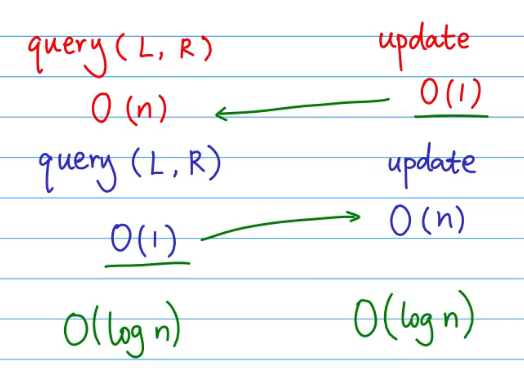 query (L, R) update
O(n) O(1)
query (L, R) update
O(1) O(n)
O(log n) O(log n)